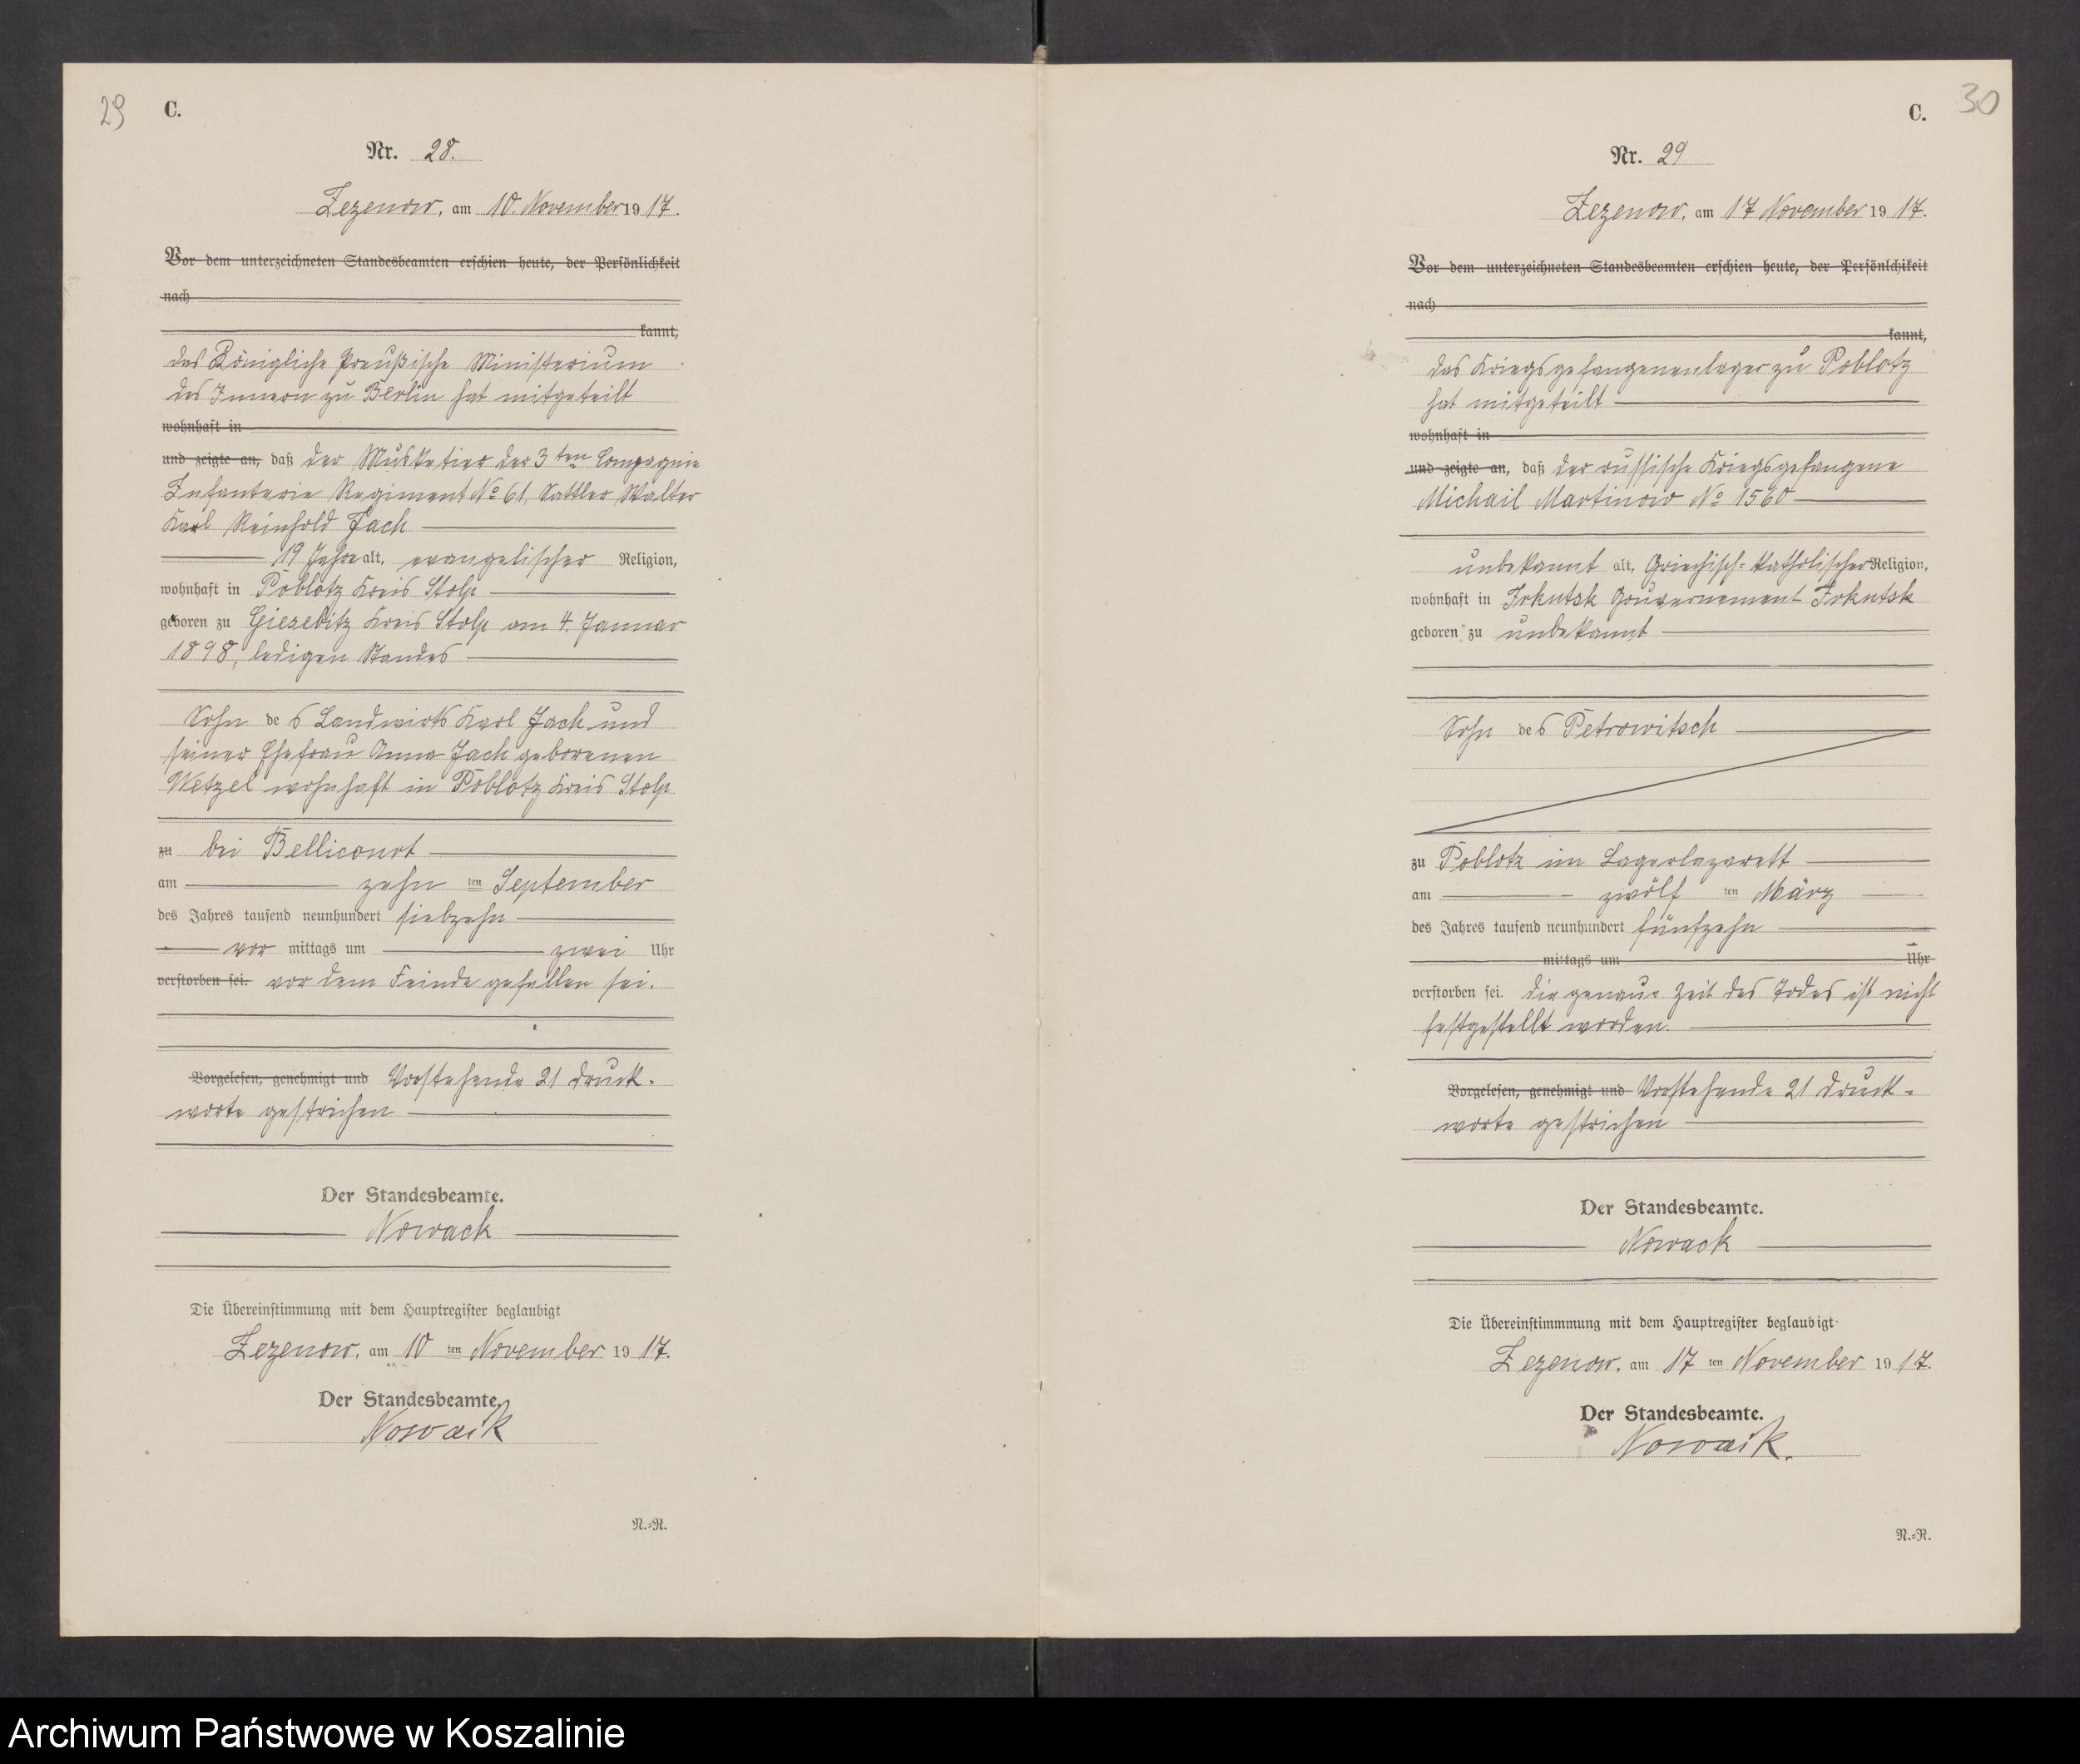 29
C.
Nr. 28.
Zezenow, am 10. November 1917.
Vor dem unterzeichneten Standesbeamten erschien heute, der Persönlichkeit
nach
kannt,
das Königliche Preußische Ministerium
des Innern zu Berlin hat mitgeteilt
wohnhaft in
und zeigte an, daß der Musketier der 3ten Compagnie
Infanterie Regiment No 61, Sattler Walter
Karl Reinhold Jach
19 Jahre alt, evangelischer Religion,
wohnhaft in Poblotz Kreis Stolp
geboren zu Giesebitz Kreis Stolp am 4. Januar
1898, ledigen Standes
Sohn des Landwirts Karl Jach und
seiner Ehefrau Anna Jach geborenen
Wetzel wohnhaft in Poblotz Kreis Stolp
zu bei Bellicourt
am zehn ten September
des Jahres tausend neunhundert siebzehn
vor mittags um zwei Uhr
verstorben sei. vor dem Feinde gefallen sei.
Vorgelesen, genehmigt und Vorstehende 21 Druck-
worte gestrichen
Der Standesbeamte.
Nowack
Die Übereinstimmung mit dem Hauptregister beglaubigt
Zezenow, am 10 ten November 1917.
Der Standesbeamte.
Nowack
N.=R.
C.
30
Nr. 29
Zezenow, am 17 November 1917.
Vor dem unterzeichneten Standesbeamten erschien heute, der Persönlchikeit
nach
kannt,
das Kriegsgefangenenlager zu Poblotz
hat mitgeteilt
wohnhaft in
und zeigte an, daß der russische Kriegsgefangene
Michail Martinow No 1560
unbekannt alt, Griechisch-katholischer Religion,
wohnhaft in Irkutsk Gouvernement Irkutsk
geboren zu unbekannt
Sohn des Petrowitsch
zu Poblotz im Lagerlazarett
am zwölf ten März
des Jahres tausend neunhundert fünfzehn
mittags um Uhr
verstorben sei. die genaue Zeit des Todes ist nicht
festgestellt worden.
Vorgelesen, genehmigt und Vorstehende 21 Druck-
worte gestrichen
Der Standesbeamte.
Nowack
Die Übereinstimmmung mit dem Hauptregister beglaubigt
Zezenow, am 17 ten November 1917.
Der Standesbeamte.
Nowack.
N.=R.
Archiwum Państwowe w Koszalinie